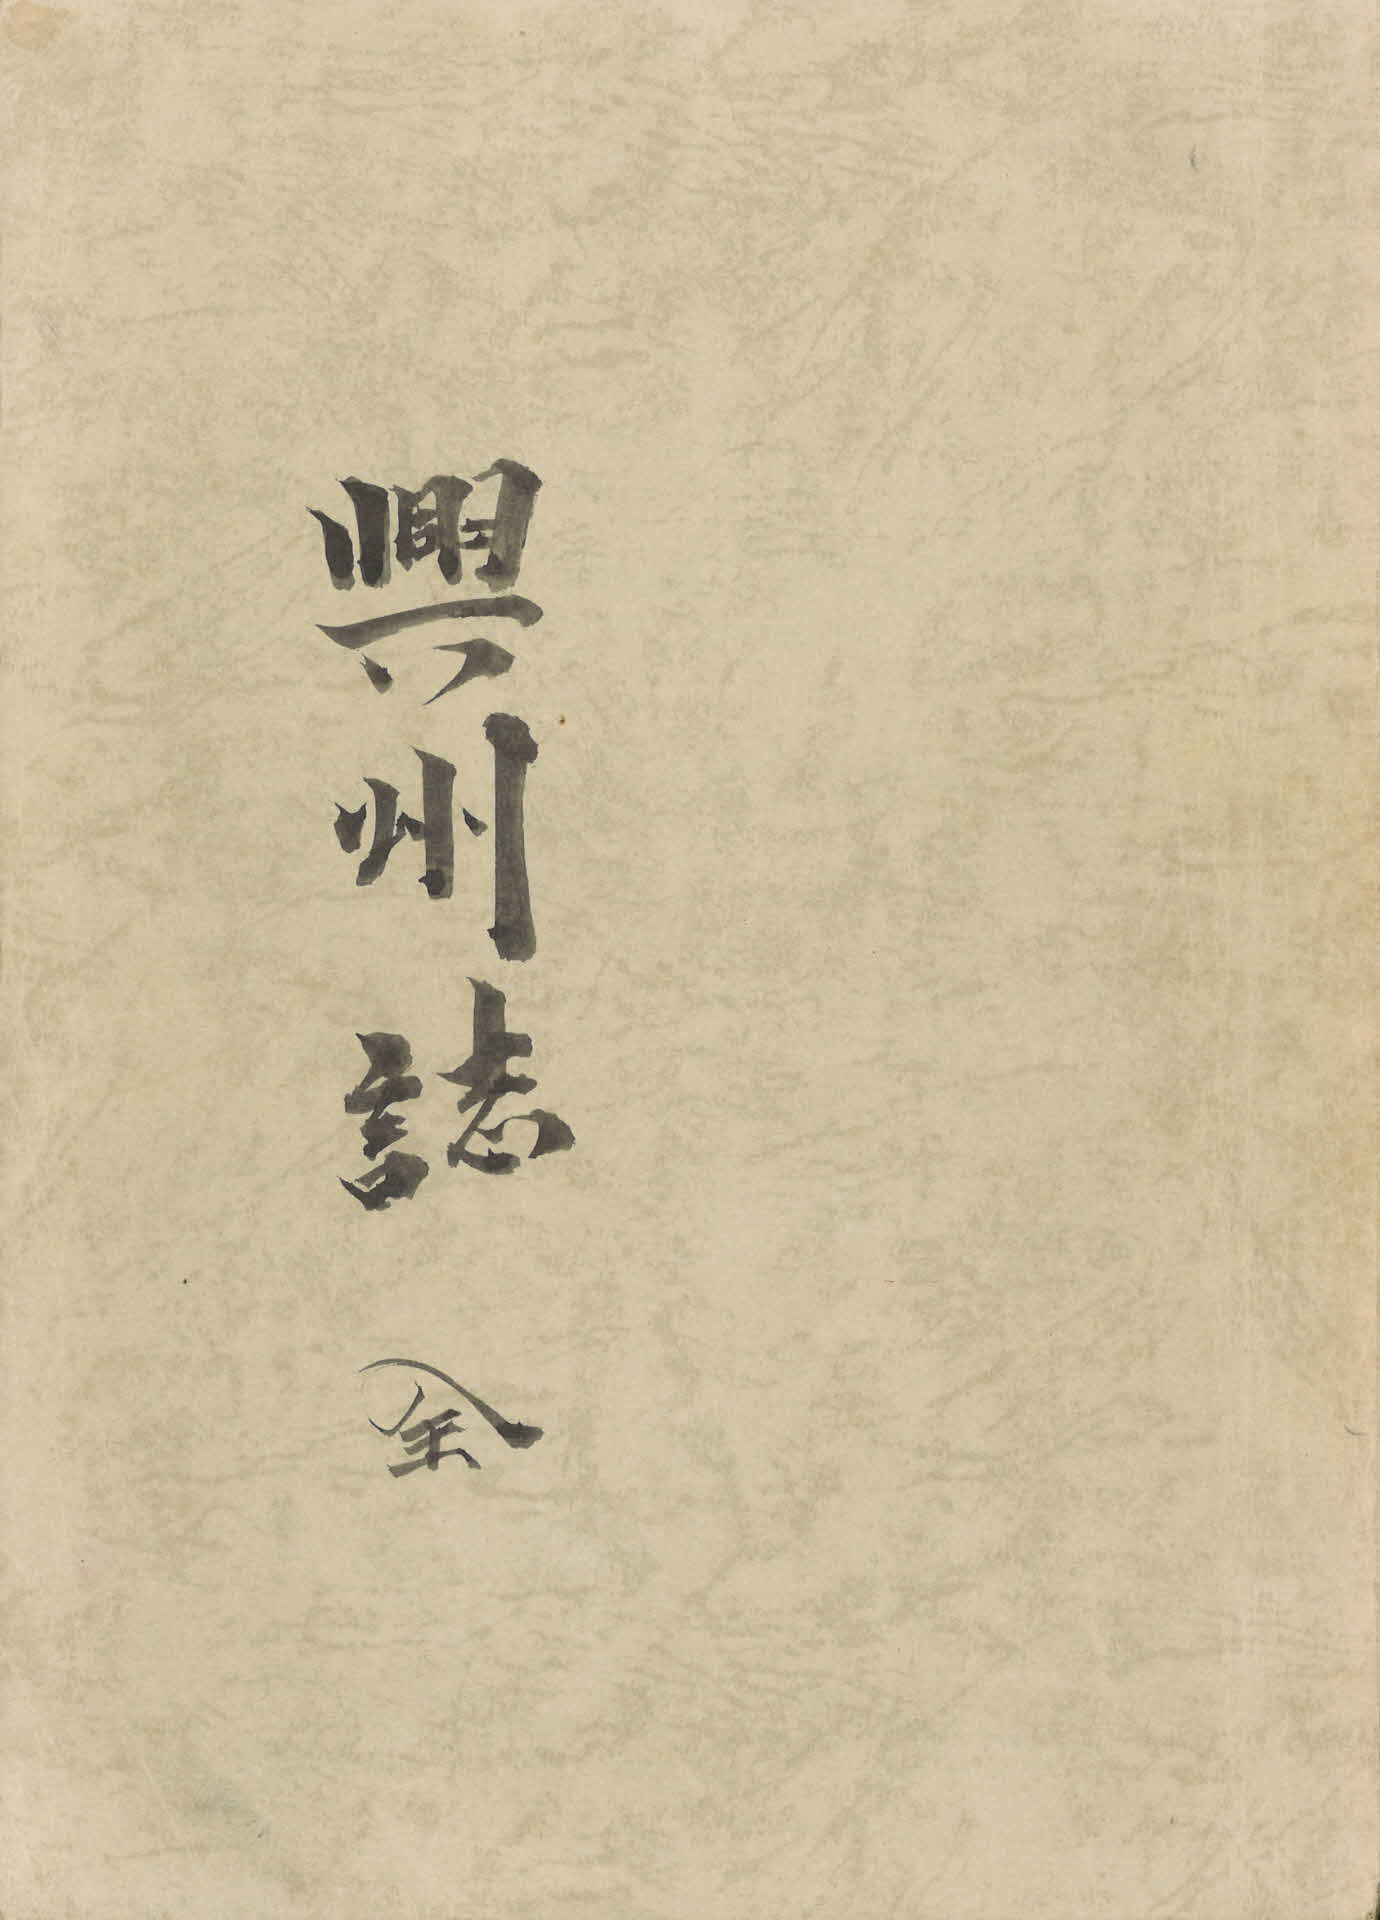 興州誌 全